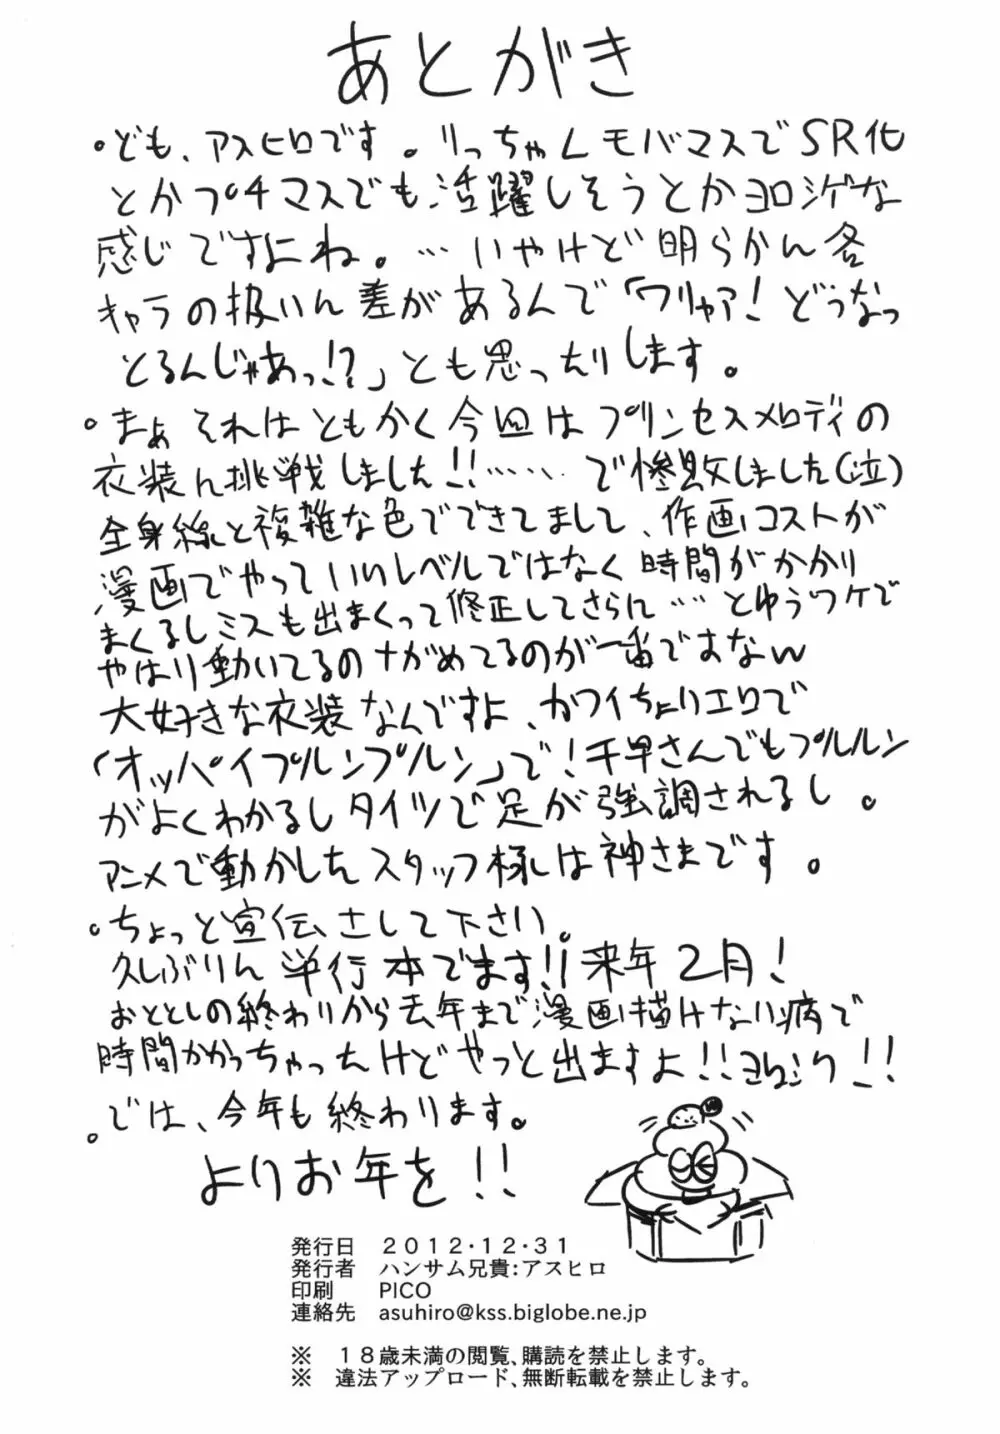 あとがき
・ども、アスヒロです。りっちゃんモバマスでSR化
とかプチマスでも活躍しそうとかヨロシゲな
感じですよね。…いやけど明らかん各
キャラの扱いん差があるんで「ワリャア!どうなっ
とるんじゃあっ!?」とも思ったりします。
・まぁそれはともかく今回はプリンセスメロディの
衣装ん挑戦しました!!……で惨敗しました(泣)
全身線と複雑な色でできてまして、作画コストが
漫画でやっていいレベルではなく時間がかかり
まくるしミスも出まくって修正してさらに…とゆうワケで
やはり動いてるのナがめてるのが一番ですなw
大好きな衣装なんですよ、カワイちょりエロで
「オッパイプルンプルン」で!千早さんでもプルルン
がよくわかるしタイツで足が強調されるし。
アニメで動かしたスタッフ様しは神さまです。
・ちょっと宣伝さして下さい。
久しぶりん単行本でます!!来年2月!
おととしの終わりから去年まで漫画描けない病で
時間かかっちゃったけどやっと出ますよ!!ヨロシク!!
・では、今年も終わります。
よりお年を!!
発行日 2012・12・31
発行者 ハンサム兄貴:アスヒロ
印刷 PICO
連絡先 asuhiro@kss.biglobe.ne.jp
※ 18歳未満の閲覧、購読を禁止します。
※ 違法アップロード、無断転載を禁止します。